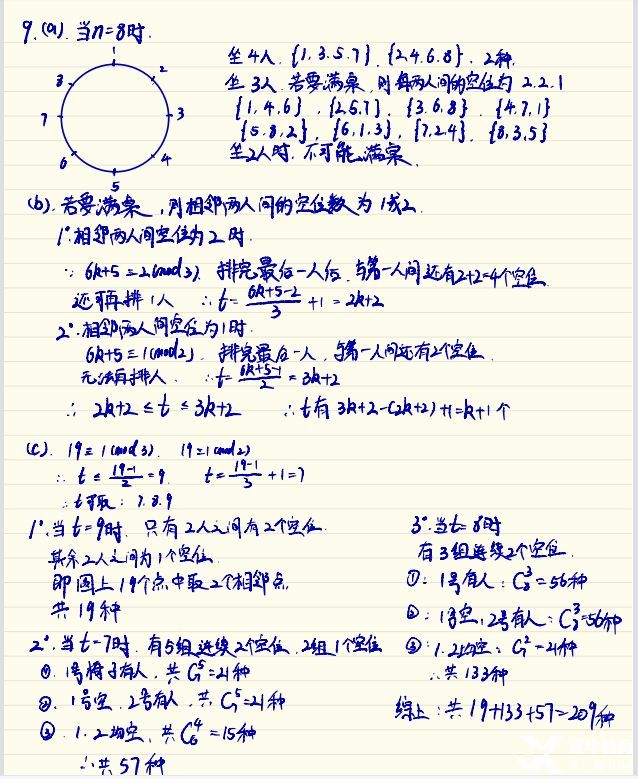 9.(a). 当n=8时.
1
2
3
4
5
6
7
8
坐4人. {1.3.5.7} . {2.4.6.8} . 2种.
坐3人. 若要满桌, 则每两人间的空位为 2.2.1
{1,4,6} , {2.5.7} , {3.6.8} , {4.7.1}
{5.8.2} , {6.1.3} , {7.2.4} , {8.3.5}
坐2人时. 不可能满桌.
(b). 若要满桌, 则相邻两人间的空位数为 1或2.
1°.相邻两人间空位为2时.
∵ 6k+5≡2(mod3). 排完最后一人后, 与第一人间还有2+2=4个空位
还可再排1人 ∴ t=(6k+5-2)/3 +1 = 2k+2
2°.相邻两人间空位为1时.
6k+5≡1(mod2). 排完最后一人, 与第一人间还有2个空位.
无法再排人. ∴ t=(6k+5-1)/2 = 3k+2
∴ 2k+2 ≤ t ≤ 3k+2 ∴ t有 3k+2-(2k+2)+1=k+1个
(c). 19≡1(mod3). 19≡1(mod2)
∴ t ≤ (19-1)/2 = 9 t = (19-1)/3 +1=7
∴ t可取: 7.8.9
1°.当t=9时. 只有2人之间有2个空位.
其余2人之间为1个空位.
即圆上19个点中取2个相邻点.
共19种
2°.当t=7时. 有5组连续2个空位. 2组1个空位
①. 1号椅子有人, 共C₇⁵=21种
②. 1号空. 2号有人, 共C₇⁵=21种
③. 1.2均空, 共C₆⁴=15种
∴共57种
3°.当t=8时
有3组连续2个空位.
①: 1号有人: C₈³=56种
②: 1号空, 2号有人: C₈³=56种
③: 1.2均空: C₇²=21种
∴共133种
综上: 共19+133+57=209种